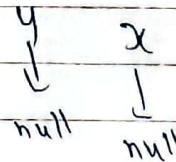 y x
↓ ↓
null null